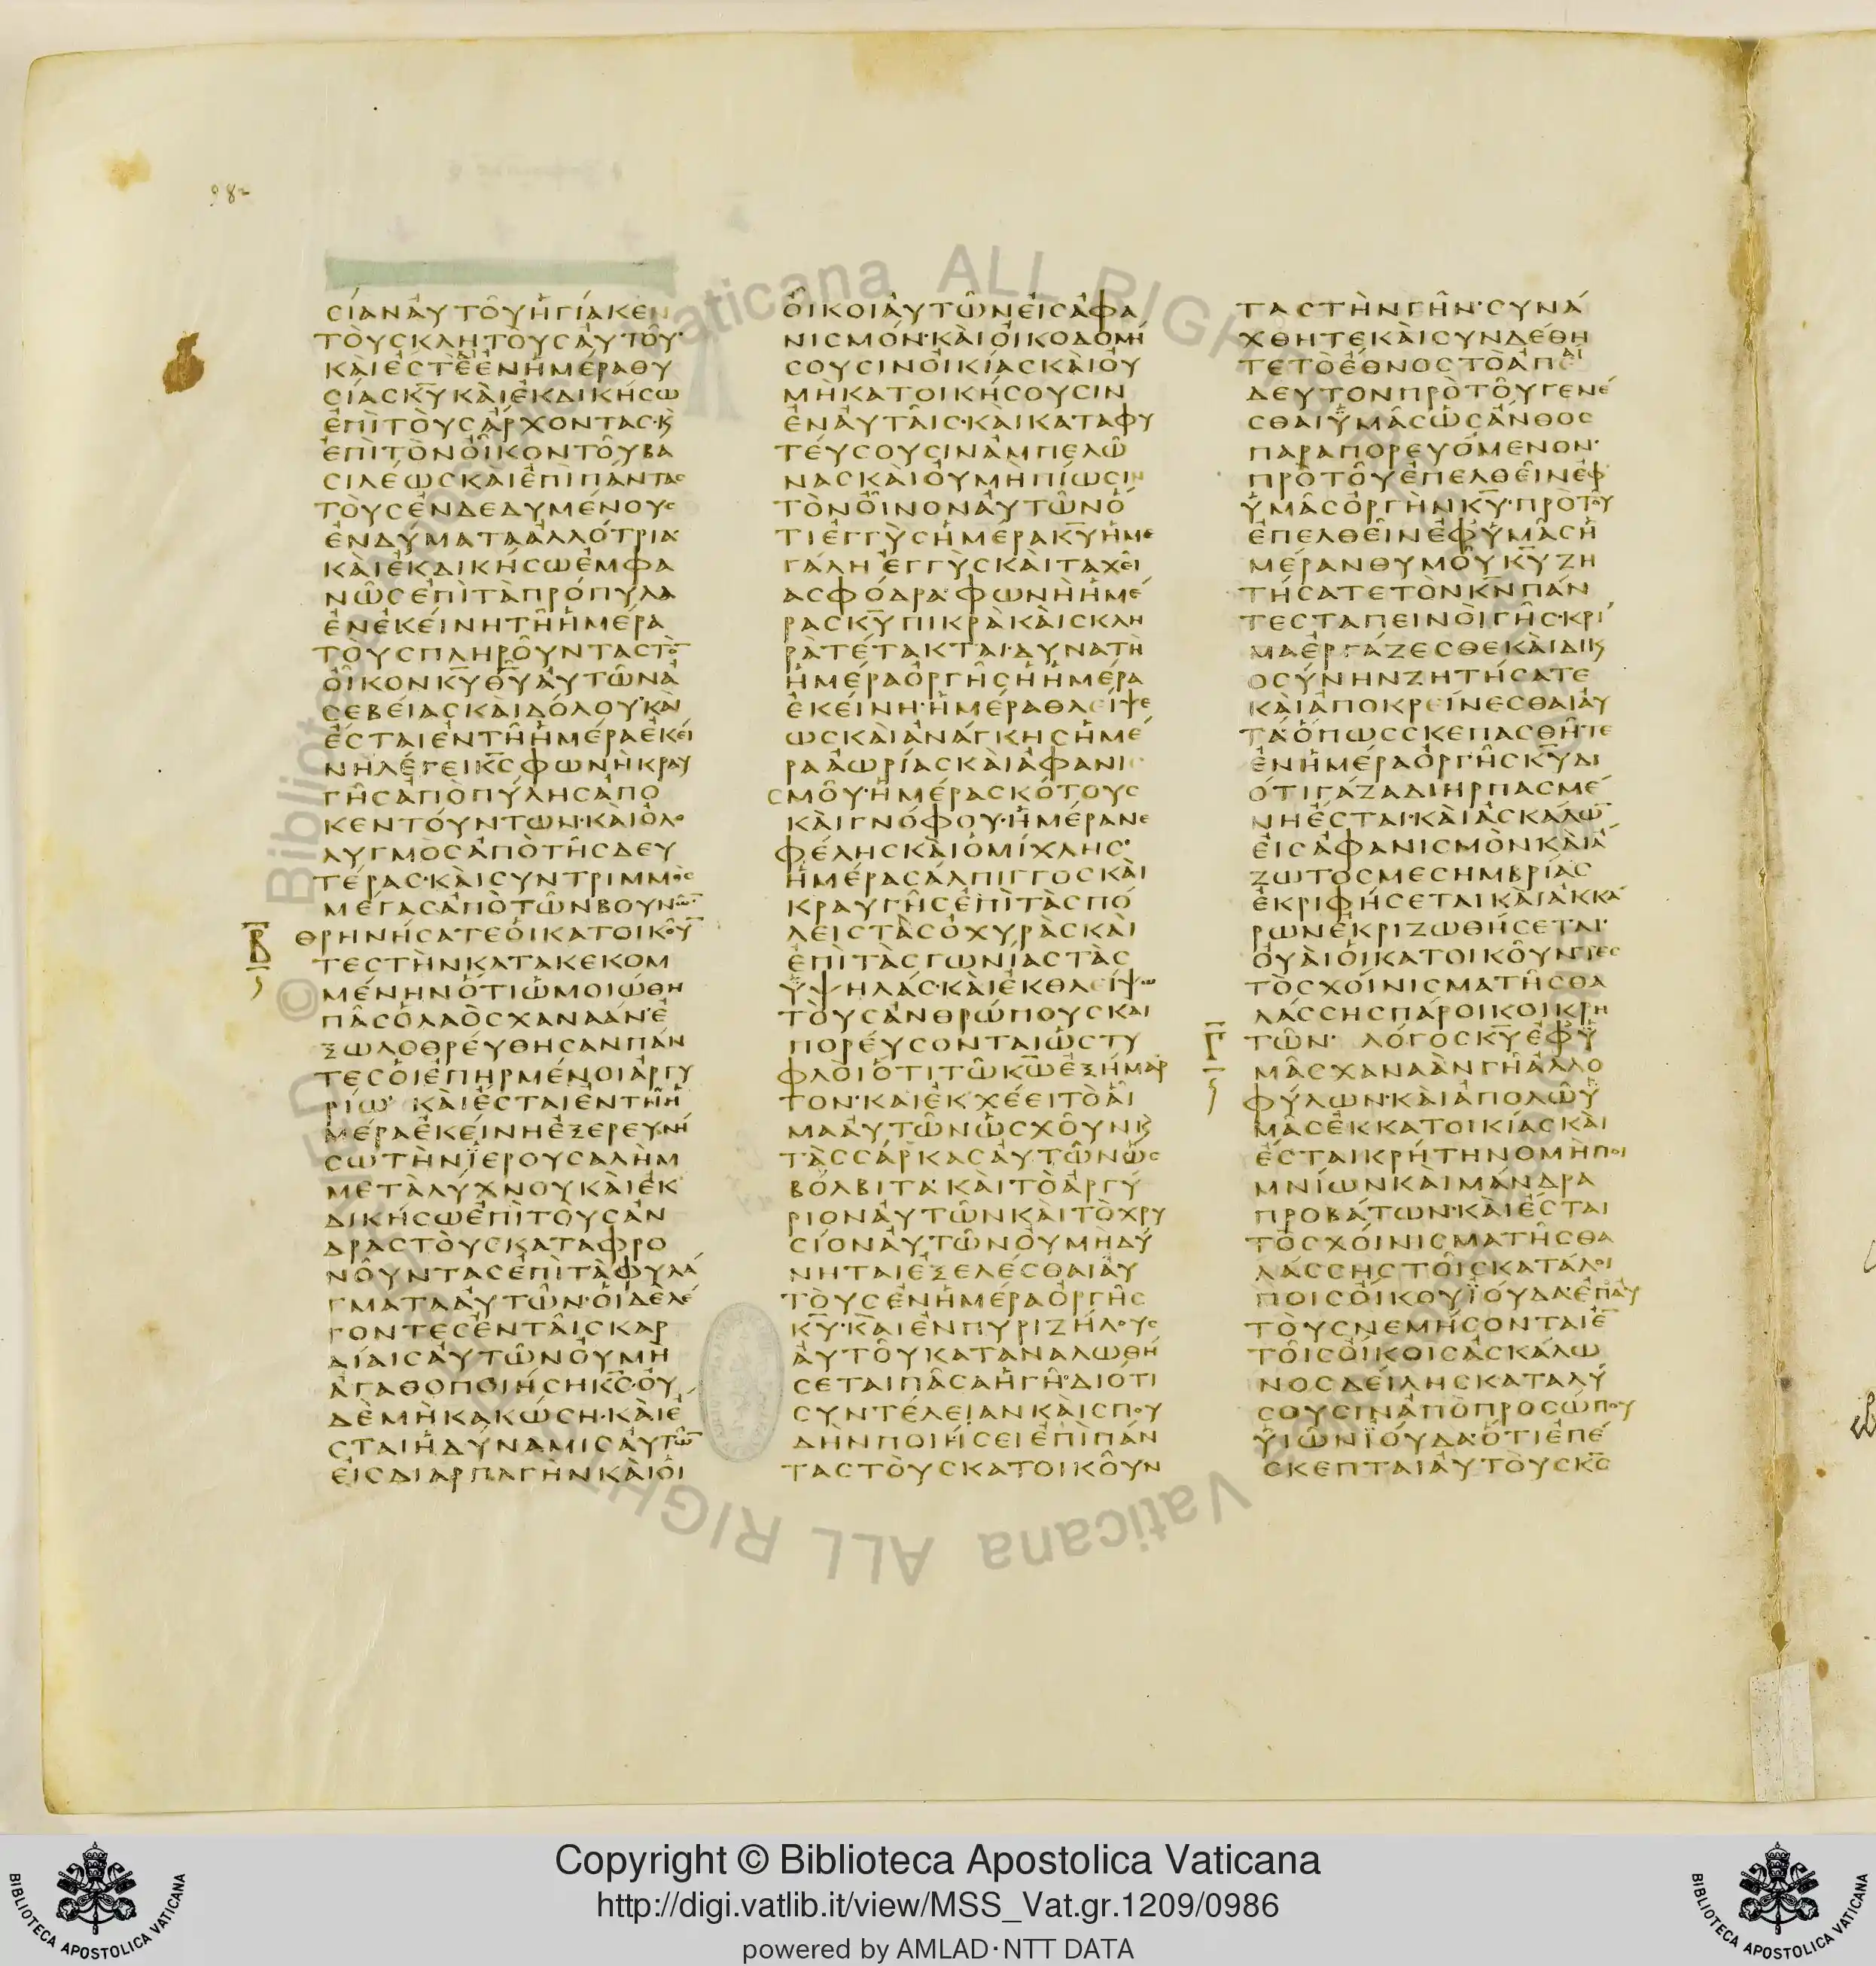 982
ϹΙΑΝΑΥΤΟΥΗΓΙΑΚΕΝ
ΤΟΥϹΚΛΗΤΟΥϹΑΥΤΟΥ·
ΚΑΙΕϹΤΕΕΝΗΜΕΡΑΘΥ
ϹΙΑϹΚΥΚΑΙΕΚΔΙΚΗϹΩ
ΕΠΙΤΟΥϹΑΡΧΟΝΤΑϹ·Κ
ΕΠΙΤΟΝΟΙΚΟΝΤΟΥΒΑ
ϹΙΛΕΩϹΚΑΙΕΠΙΠΑΝΤΑϹ
ΤΟΥϹΕΝΔΕΔΥΜΕΝΟΥϹ
ΕΝΔΥΜΑΤΑΑΛΛΟΤΡΙΑ·
ΚΑΙΕΚΔΙΚΗϹΩΕΜΦΑ
ΝΩϹΕΠΙΤΑΠΡΟΠΥΛΑ
ΕΝΕΚΕΙΝΗΤΗΗΜΕΡΑ
ΤΟΥϹΠΛΗΡΟΥΝΤΑϹΤΟ
ΟΙΚΟΝΚΥΘΥΑΥΤΩΝΑ
ϹΕΒΕΙΑϹΚΑΙΔΟΛΟΥ·ΚΑΙ
ΕϹΤΑΙΕΝΤΗΗΜΕΡΑΕΚΕΙ
ΝΗΛΕΓΕΙΚϹΦΩΝΗΚΡΑΥ
ΓΗϹΑΠΟΠΥΛΗϹΑΠΟ
ΚΕΝΤΟΥΝΤΩΝ·ΚΑΙΟΛΟ
ΛΥΓΜΟϹΑΠΟΤΗϹΔΕΥ
ΤΕΡΑϹ·ΚΑΙϹΥΝΤΡΙΜΜΟϹ
ΜΕΓΑϹΑΠΟΤΩΝΒΟΥΝΩ·
Β ΘΡΗΝΗϹΑΤΕΟΙΚΑΤΟΙΚΟΥ
ΤΕϹΤΗΝΚΑΤΑΚΕΚΟΜ
ΜΕΝΗΝΟΤΙΩΜΟΙΩΘΗ
ΠΑϹΟΛΑΟϹΧΑΝΑΑΝ·Ε
ΞΩΛΟΘΡΕΥΘΗϹΑΝΠΑΝ
ΤΕϹΟΙΕΠΗΡΜΕΝΟΙΑΡΓΥ
ΡΙΩ· ΚΑΙΕϹΤΑΙΕΝΤΗΗ
ΜΕΡΑΕΚΕΙΝΗΕΞΕΡΕΥΝΗ
ϹΩΤΗΝΪΕΡΟΥϹΑΛΗΜ
ΜΕΤΑΛΥΧΝΟΥΚΑΙΕΚ
ΔΙΚΗϹΩΕΠΙΤΟΥϹΑΝ
ΔΡΑϹΤΟΥϹΚΑΤΑΦΡΟ
ΝΟΥΝΤΑϹΕΠΙΤΑΦΥΛΑ
ΓΜΑΤΑΑΥΤΩΝ·ΟΙΔΕΛΕ
ΓΟΝΤΕϹΕΝΤΑΙϹΚΑΡ
ΔΙΑΙϹΑΥΤΩΝΟΥΜΗ
ΑΓΑΘΟΠΟΙΗϹΗΚϹ·ΟΥ
ΔΕΜΗΚΑΚΩϹΗ·ΚΑΙΕ
ϹΤΑΙΗΔΥΝΑΜΙϹΑΥΤΩ
ΕΙϹΔΙΑΡΠΑΓΗΝΚΑΙΟΙ
ΟΙΚΟΙΑΥΤΩΝΕΙϹΑΦΑ
ΝΙϹΜΟΝ·ΚΑΙΟΙΚΟΔΟΜΗ
ϹΟΥϹΙΝΟΙΚΙΑϹΚΑΙΟΥ
ΜΗΚΑΤΟΙΚΗϹΟΥϹΙΝ
ΕΝΑΥΤΑΙϹ·ΚΑΙΚΑΤΑΦΥ
ΤΕΥϹΟΥϹΙΝΑΜΠΕΛΩ
ΝΑϹΚΑΙΟΥΜΗΠΙΩϹΙΝ
ΤΟΝΟΙΝΟΝΑΥΤΩΝΟ
ΤΙΕΓΓΥϹΗΜΕΡΑΚΥΗΜΕ
ΓΑΛΗΕΓΓΥϹΚΑΙΤΑΧΕΙ
ΑϹΦΟΔΡΑ·ΦΩΝΗΗΜΕ
ΡΑϹΚΥΠΙΚΡΑΚΑΙϹΚΛΗ
ΡΑΤΕΤΑΚΤΑΙ·ΔΥΝΑΤΗ
ΗΜΕΡΑΟΡΓΗϹΗΗΜΕΡΑ
ΕΚΕΙΝΗ·ΗΜΕΡΑΘΛΕΙΨΕ
ΩϹΚΑΙΑΝΑΓΚΗϹΗΜΕ
ΡΑΑΩΡΙΑϹΚΑΙΑΦΑΝΙ
ϹΜΟΥ·ΗΜΕΡΑϹΚΟΤΟΥϹ
ΚΑΙΓΝΟΦΟΥ·ΗΜΕΡΑΝΕ
ΦΕΛΗϹΚΑΙΟΜΙΧΛΗϹ·
ΗΜΕΡΑϹΑΛΠΙΓΓΟϹΚΑΙ
ΚΡΑΥΓΗϹΕΠΙΤΑϹΠΟ
ΛΕΙϹΤΑϹΟΧΥΡΑϹΚΑΙ
ΕΠΙΤΑϹΓΩΝΙΑϹΤΑϹ
ΥΨΗΛΑϹ·ΚΑΙΕΚΘΛΕΙΨΩ
ΤΟΥϹΑΝΘΡΩΠΟΥϹΚΑΙ
ΠΟΡΕΥϹΟΝΤΑΙΩϹΤΥ
ΦΛΟΙΟΤΙΤΩΚΩΕΞΗΜΑΡ
ΤΟΝ·ΚΑΙΕΚΧΕΕΙΤΟΑΙ
ΜΑΑΥΤΩΝΩϹΧΟΥΝΚ
ΤΑϹϹΑΡΚΑϹΑΥΤΩΝΩϹ
ΒΟΛΒΙΤΑ·ΚΑΙΤΟΑΡΓΥ
ΡΙΟΝΑΥΤΩΝΚΑΙΤΟΧΡΥ
ϹΙΟΝΑΥΤΩΝΟΥΜΗΔΥ
ΝΗΤΑΙΕΞΕΛΕϹΘΑΙΑΥ
ΤΟΥϹΕΝΗΜΕΡΑΟΡΓΗϹ
ΚΥ·ΚΑΙΕΝΠΥΡΙΖΗΛΟΥϹ
ΑΥΤΟΥΚΑΤΑΝΑΛΩΘΗ
ϹΕΤΑΙΠΑϹΑΗΓΗ·ΔΙΟΤΙ
ϹΥΝΤΕΛΕΙΑΝΚΑΙϹΠΟΥ
ΔΗΝΠΟΙΗϹΕΙΕΠΙΠΑΝ
ΤΑϹΤΟΥϹΚΑΤΟΙΚΟΥΝ
ΤΑϹΤΗΝΓΗΝ·ϹΥΝΑ
ΧΘΗΤΕΚΑΙϹΥΝΔΕΘΗ
ΤΕΤΟΕΘΝΟϹΤΟΑΠΑΙ
ΔΕΥΤΟΝΠΡΟΤΟΥΓΕΝΕ
ϹΘΑΙΫΜΑϹΩϹΑΝΘΟϹ
ΠΑΡΑΠΟΡΕΥΟΜΕΝΟΝ·
ΠΡΟΤΟΥΕΠΕΛΘΕΙΝΕΦ
ΥΜΑϹΟΡΓΗΝΚΥ·ΠΡΟΤΟΥ
ΕΠΕΛΘΕΙΝΕΦΥΜΑϹΗ
ΜΕΡΑΝΘΥΜΟΥΚΥΖΗ
ΤΗϹΑΤΕΤΟΝΚΝΠΑΝ
ΤΕϹΤΑΠΕΙΝΟΙΓΗϹ·ΚΡΙ
ΜΑΕΡΓΑΖΕϹΘΕΚΑΙΔΙΚ
ΟϹΥΝΗΝΖΗΤΗϹΑΤΕ
ΚΑΙΑΠΟΚΡΕΙΝΕϹΘΑΙΑΥ
ΤΑΟΠΩϹϹΚΕΠΑϹΘΗΤΕ
ΕΝΗΜΕΡΑΟΡΓΗϹΚΥΔΙ
ΟΤΙΓΑΖΑΔΙΗΡΠΑϹΜΕ
ΝΗΕϹΤΑΙ·ΚΑΙΑϹΚΑΛΩ
ΕΙϹΑΦΑΝΙϹΜΟΝΚΑΙΑ
ΖΩΤΟϹΜΕϹΗΜΒΡΙΑϹ
ΕΚΡΙΦΗϹΕΤΑΙΚΑΙΑΚΚΑ
ΡΩΝΕΚΡΙΖΩΘΗϹΕΤΑΙ·
ΟΥΑΙΟΙΚΑΤΟΙΚΟΥΝΤΕϹ
ΤΟϹΧΟΙΝΙϹΜΑΤΗϹΘΑ
ΛΑϹϹΗϹΠΑΡΟΙΚΟΙΚΡΗ
Γ ΤΩΝ· ΛΟΓΟϹΚΥΕΦΫ
ΜΑϹΧΑΝΑΑΝΓΗΑΛΛΟ
ΦΥΛΩΝ·ΚΑΙΑΠΟΛΩΫ
ΜΑϹΕΚΚΑΤΟΙΚΙΑϹΚΑΙ
ΕϹΤΑΙΚΡΗΤΗΝΟΜΗΠΟΙ
ΜΝΙΩΝΚΑΙΜΑΝΔΡΑ
ΠΡΟΒΑΤΩΝ·ΚΑΙΕϹΤΑΙ
ΤΟϹΧΟΙΝΙϹΜΑΤΗϹΘΑ
ΛΑϹϹΗϹΤΟΙϹΚΑΤΑΛΟΙ
ΠΟΙϹΟΙΚΟΥΪΟΥΔΑ·ΕΠΑΥ
ΤΟΥϹΝΕΜΗϹΟΝΤΑΙΕ
ΤΟΙϹΟΙΚΟΙϹΑϹΚΑΛΩ
ΝΟϹΔΕΙΛΗϹΚΑΤΑΛΥ
ϹΟΥϹΙΝΑΠΟΠΡΟϹΩΠΟΥ
ΥΙΩΝΪΟΥΔΑ·ΟΤΙΕΠΕ
ϹΚΕΠΤΑΙΑΥΤΟΥϹΚϹ
Copyright © Biblioteca Apostolica Vaticana
http://digi.vatlib.it/view/MSS_Vat.gr.1209/0986
powered by AMLAD·NTT DATA
BIBLIOTECA APOSTOLICA VATICANA
BIBLIOTECA APOSTOLICA VATICANA